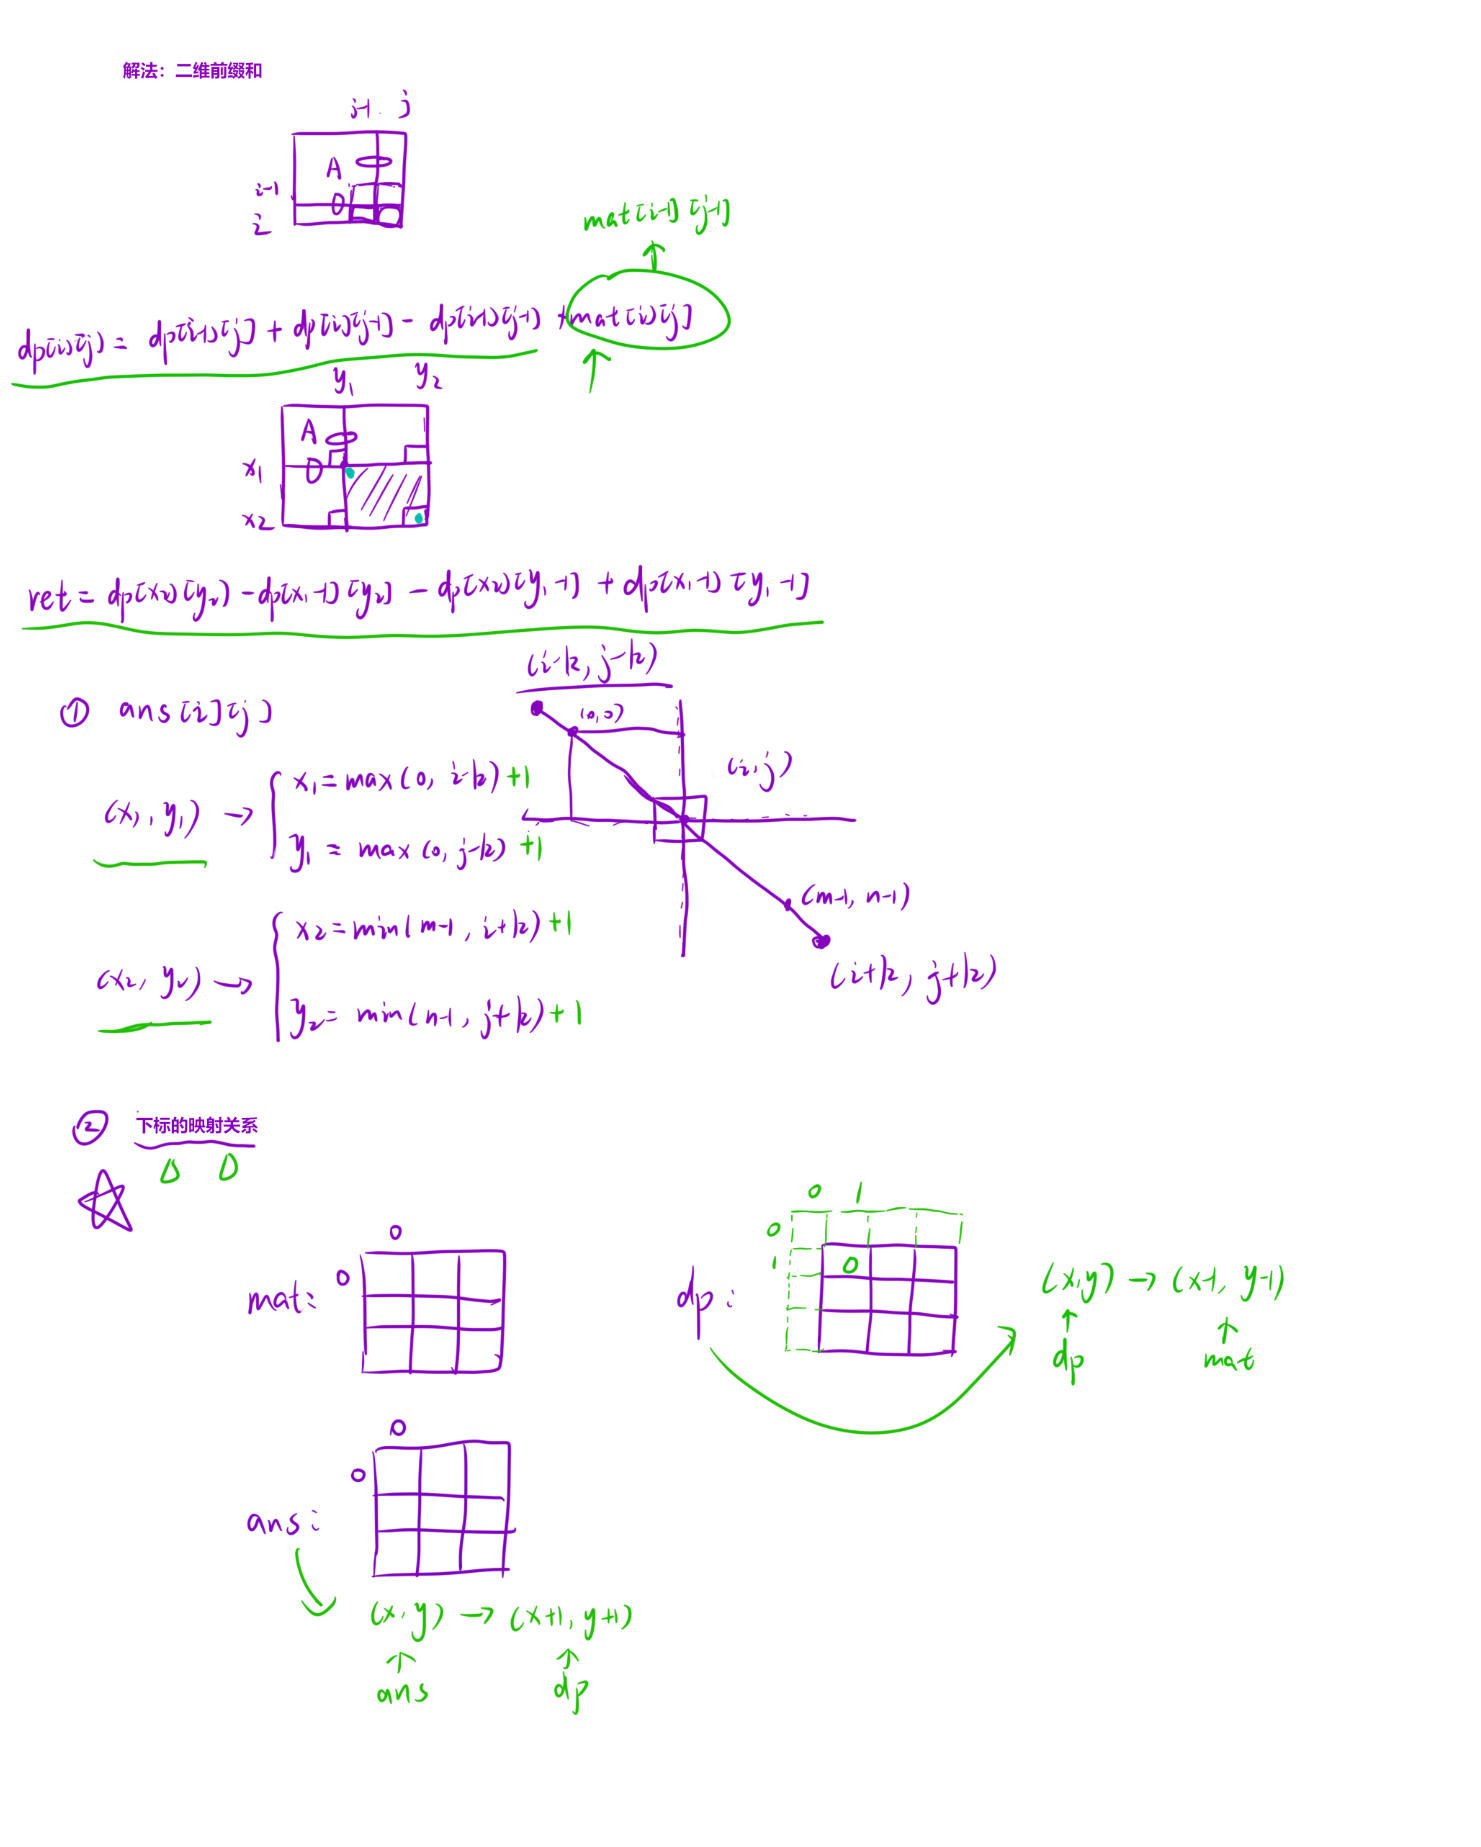 解法：二维前缀和
j-1 j
A
i-1
D
i
mat[i-1][j-1]
dp[i][j] = dp[i-1][j] + dp[i][j-1] - dp[i-1][j-1] + mat[i][j]
y₁ y₂
A
x₁ D
x₂
ret = dp[x₂][y₂] - dp[x₁-1][y₂] - dp[x₂][y₁-1] + dp[x₁-1][y₁-1]
(i-k, j-k)
① ans[i][j]
(0,0)
(i,j)
(x₁, y₁) → { x₁ = max(0, i-k) +1
y₁ = max(0, j-k) +1
(m-1, n-1)
(x₂, y₂) → { x₂ = min(m-1, i+k) +1
y₂ = min(n-1, j+k) +1
(i+k, j+k)
② 下标的映射关系
0 1
0
0
0
1 0
mat:
dp:
(x,y) → (x-1, y-1)
dp mat
0
0
ans:
(x,y) → (x+1, y+1)
ans dp